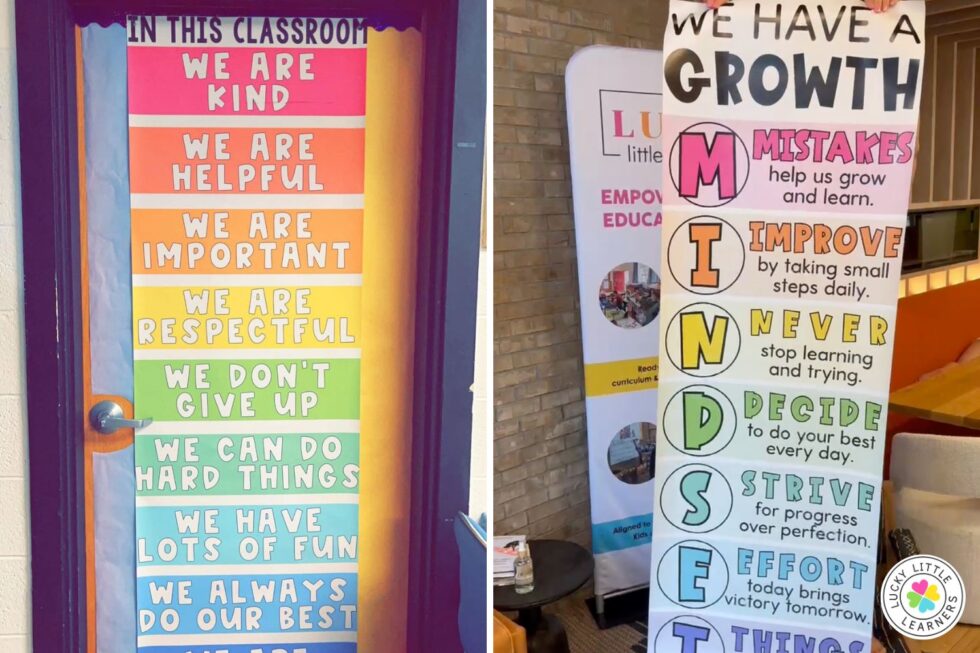 IN THIS CLASSROOM
WE ARE
KIND
WE ARE
HELPFUL
WE ARE
IMPORTANT
WE ARE
RESPECTFUL
WE DON'T
GIVE UP
WE CAN DO
HARD THINGS
WE HAVE
LOTS OF FUN
WE ALWAYS
DO OUR BEST
WE ARE
WE HAVE A
GROWTH
M MISTAKES
help us grow
and learn.
I IMPROVE
by taking small
steps daily.
N NEVER
stop learning
and trying.
D DECIDE
to do your best
every day.
S STRIVE
for progress
over perfection.
E EFFORT
today brings
victory tomorrow.
T THINGS
LU
little
EMPOW
EDUCA
Read
curriculum &
Aligned to
Kids
LUCKY LITTLE LEARNERS